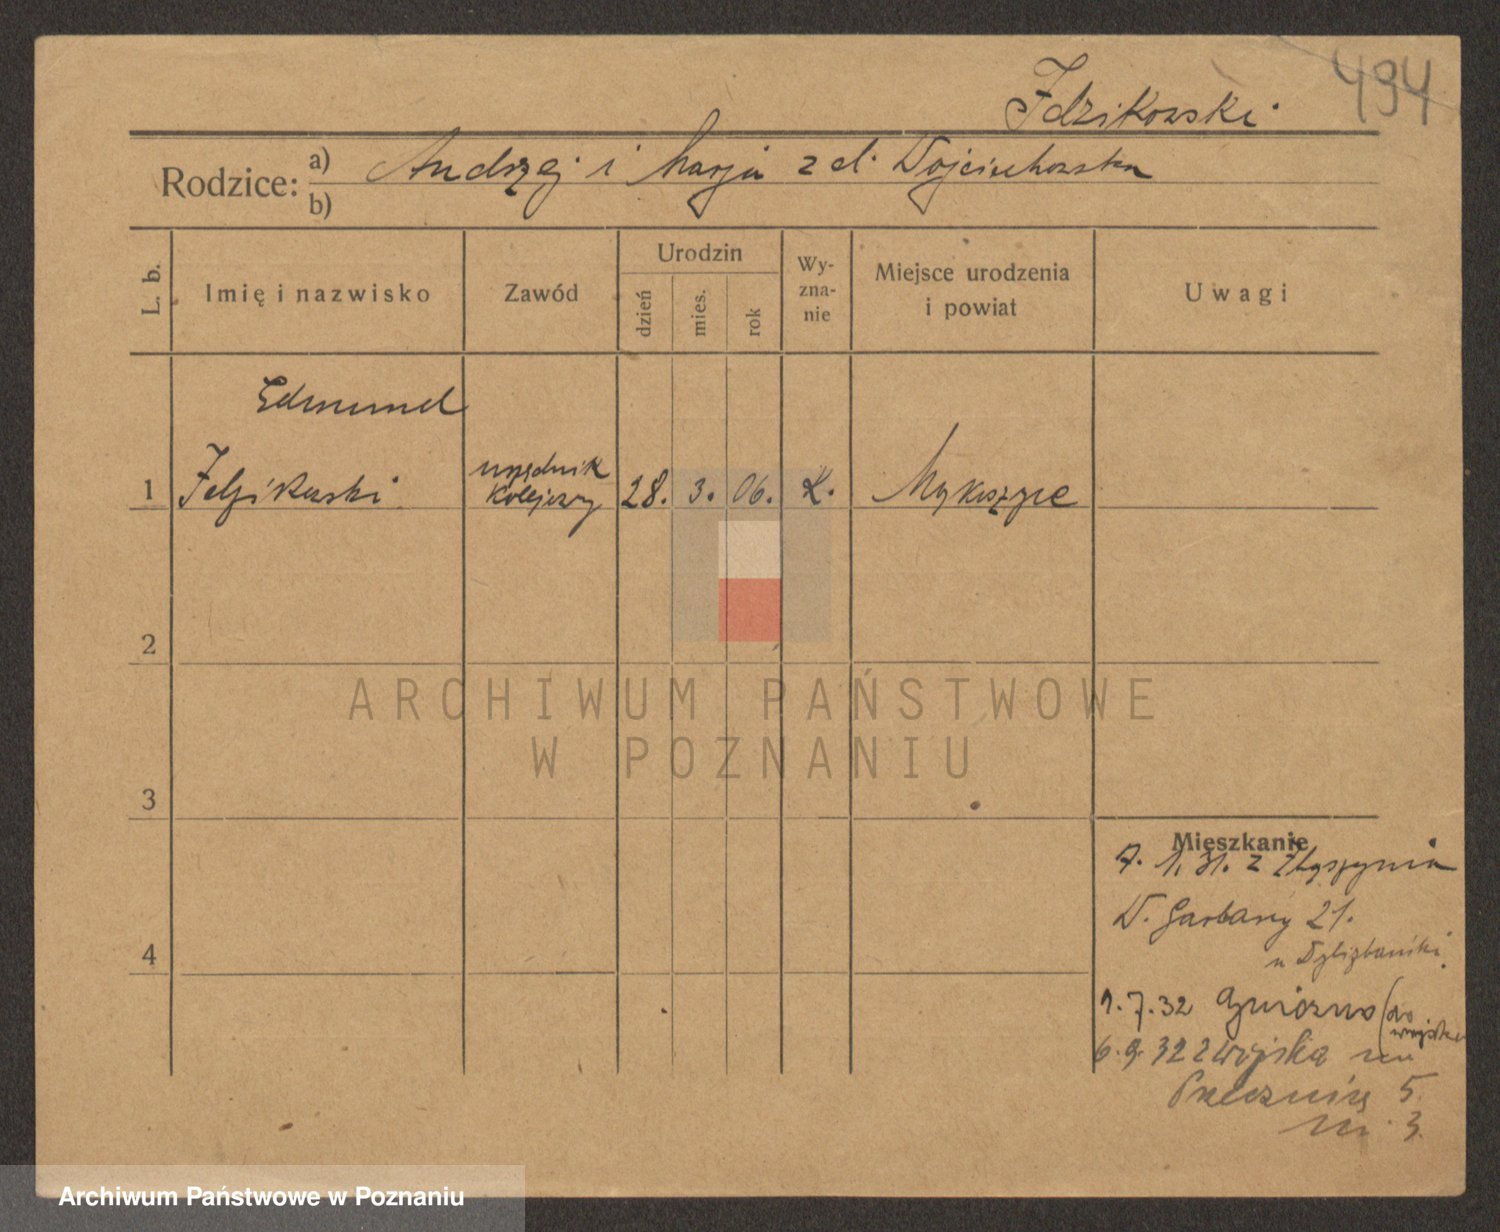 494
Idzikowski
Rodzice: a) Andrzej i Marja z d. Wojciechowska
b)
L. b.
Imię i nazwisko
Zawód
Urodzin
dzień
mies.
rok
Wy-
zna-
nie
Miejsce urodzenia
i powiat
Uwagi
Edmund
1 Idzikowski
urzędnik
kolejowy
28. 3. 06. K.
2
3
4
ARCHIWUM PAŃSTWOWE
W POZNANIU
Mieszkanie
7. 1. 31. z Zbąszynia
W. Garbary 21.
u
1. 7. 32 Gniezno (do
wojska
6. 9. 32 z wojska na
5.
m. 3.
Archiwum Państwowe w Poznaniu